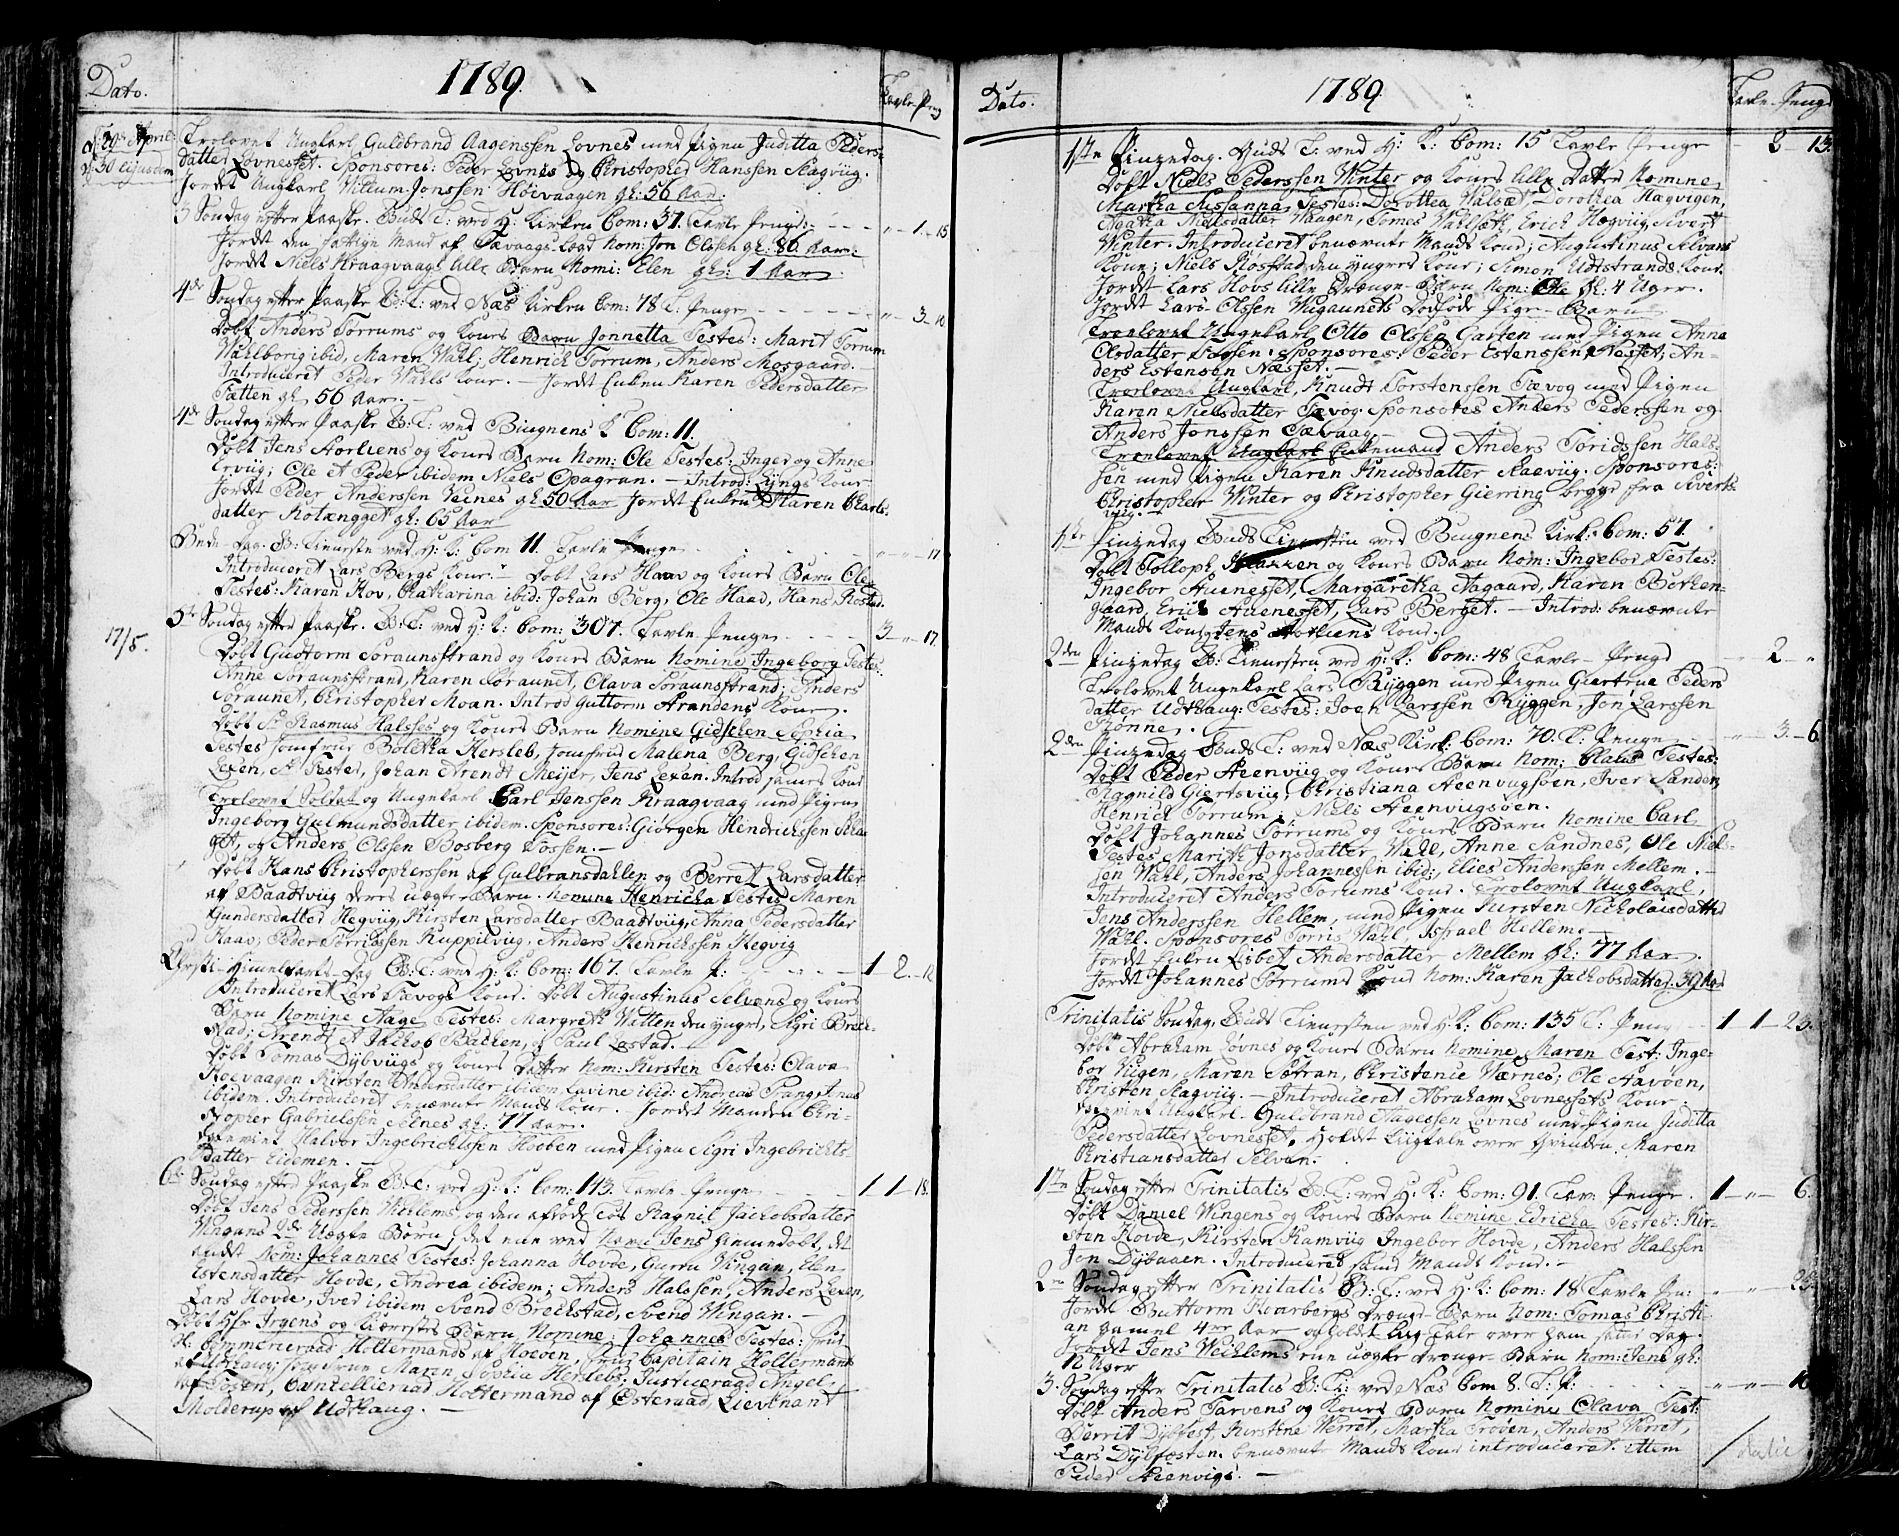 Dato.
1789
Tavle-Peng
d: 29de April: Trolovet Ungkarl Guldbrand Aagensen Lovnes med Pigen Juditta Peders-
d: 30 Ejusdem datter Lovnesset. Sponsores: Peder Lovnes og Christopher Hanssen Stagviig.
Jordet Ungkarl Villum Jonssen Höivaagen gl: 56 Aar.
3 Søndag efter Paaske. Guds T: ved H: Kirken Com: 37. Tavle Penge - 1 - 15
Jordet den fattige Mand af Tævaags Lægd Nom: Jon Olssen gl: 86 Aar.
Jordet Niels Kraagvaags lille Barn Nomi: Elen gl: 1 Aar.
4de Søndag efter Paaske G: T: ved Næs Kirken Com: 78 T: Penge - 3 - 10
Døbt Anders Torrums og Kones Barn Jonnetta Testes: Marit Torrum
Wahlborig ibid, Maren Wahl; Henrich Torrum, Anders Mosgaard.
Introduceret Peder Wahls Kone. - Jordet Enken Karen Pedersdatter
Tetten gl: 56 Aar. -
4de Søndag efter Paaske G: T: ved Biugnens K Com: 11.
Døbt Jens Storliens og Kones Barn Nom: Ole Testes: Inger og Anne
Ervig; Ole et Peder ibidem Niels Opagran. - Introd: Lyngs Kone
Jordet Peder Anderssen Veines gl: 50 Aar Jordet Enken Karen Charls-
datter Kotængget gl: 65 Aar
Bede-Dag. G: Tienesten ved H: K: Com 11. Tavle Penge - 17
Introduceret Lars Bergs Kone. - Døbt Lars Haav og Kones Barn Ole
Testes: Karen Hov, Catharina ibid: Johan Berg, Ole Haav, Hans Rostad.
17/5. 5te Søndag efter Paaske. G: T: ved H: K: Com: 307. Tavle Penge - 3 - 17
Døbt Guttorm Soraunsstrand og Kones Barn Nomine Ingeborg Testes:
Anne Soraunsstrand, Karen Soraunet, Olava Soraunsstrand; Anders
Soraunet, Christopher Moan. Introd Guttorm Strandens Kone.
Døbt Sr Rasmus Halsses og Kones Barn Nomine Gidsken Sophia
Testes Jomfrue Boletha Hersleb, Jomfrue Malena Berg, Gidschen
Lexen, Sr Tested, Johan Arendt Meijer, Jens Lexen. Introd sames Kone
Trolovet Soldat og Ungekarl Carl Jenssen Kraagvaag med Pigen
Ingeborg Gulmundsdatter ibidem. Sponsores: Giörgen Hendrichssen Skla
get, og Anders Olssen Bosberg Fossen. -
Døbt Hans Christopherssen af Gulbransdahlen og Berret Larsdatter
af Baadtviig deres uægte Barn. Nomine Henricha Testes Maren
Gundersdatter Hegviig, Kirsten Larsdatter Baadtviig, Anna Pedersdatter
Haav; Peder Torrissen Kuppilviig, Anders Henrichssen Hegvig
Christi-Himmelfarts-Dag G: T: ved H: K: Com: 167. Tavle P: - 1 2 - 12
Introduceret Lars Tævogs Kone. Døbt Augustinus Selvans og Kones
Barn Nomine Aage Testes: Margreth Watten den yngre, Sigri Brech-
stad; Arendt et Jachob Bachen, Paul Lestad.
Døbt Tomas Dybvigs og Kones Datter Nom: Kirsten Testes: Olava
Hoevaagen Kirsten Andersdatter ibidem Lavine ibid: Andreas Prangstnas
ibidem. Introduceret benævnte Mands Kone. Jordet Manden Chri-
stopher Gabrielssen Selnes gl: 77 Aar.
Copuleret Halvor Ingebrichtssen Hoeben med Pigen Sigri Ingebrichts
Datter Eidemen. -
6te Søndag efter Paaske G: T: ved H: K: Com: 143. Tavle Penge - 1 1 - 18
Døbt Jens Pederssen Wichlems og den afdøde Coe Ragnil Jachobsdatter
Wingans 2de Uægte Børn; det ene ved Navn Jens hiemmedøbt, det
andet Nom: Johannes Testes: Johanna Hovde, Guru Wingan, Elen
Estensdatter Hovde, Andrea ibidem; Anders Halssen, Anders Lexen,
Lars Hovde, Iver ibidem Svend Brechstad, Svend Wingan. -
Døbt Hr Irgens og Kiærestes Barn, Nomine: Johannes Testes: Frue
H: Commerceraad Holtermands af Hoeven, Frue Capitain Holtermann
af Udthaug, Jomfrue Maren Sophia Hersleb; Justiceraad Angel,
af Fosen, Cancellieraad Holtermand af Østeraad, Lieutenant
Molderup af Udthaug. -
Dato.
1789
Tavle-Peng
1ste Pinzedag. Guds T: ved H: K: Com: 15 Tavle Penge - 2 - 13.
Døbt Niels Pederssen Winter og Kones lille Datter Nomine
Martha Susanna, Testes: Dorothea Walset, Dorothea Hægvigen,
Agatha Nielsdatter Waagen, Tomes Wahlseth, Erich Hægviig, Sivert
Winter. Introduceret benævnte Mands Kone; Augustinus Selvans
Kone; Niels Rösstad, den yngres Kone; Simon Udtstrands Kone.
Jordet Lars Hovs lille Drenge-Barn Nom: Ole gl: 4 Uger.
Jordet Lars Olssen Wigaunets Dødfødt Pige-Barn
Trolovet Ungekarl Otto Olssen Garten med Pigen Anna
Olsdatter Fossen: Sponsores: Peder Estenssen Nesset, An-
ders Estensen Næsset.
Trolovet Ungkarl, Knudt Torstenssen Tævog med Pigen
Karen Nielsdatter Tævog. Sponsores Anders Pederssen og
Anders Jonssen Tævaag -
Trolovet Ungkarl Enkemand Anders Toridssen Hals-
sen med Pigen Karen Knudsdatter Aaevig. Sponsores:
Christopher Winter og Christopher Gierring begge fra Siverts-
viig. -
1ste Pinzedag Guds Tienesten ved Biugnens Kirk: Com: 57.
Døbt Tolloph Hearren og Kones Barn Nom: Ingebor Testes:
Ingebor Huenesset, Margaretha Aagaard, Karen Botten-
gaard, Erich Huenesset, Lars Berget. - Introd: benævnte
Mands Kone, Jens Storliens Kone.
2den Pinzedag G: Tienesten ved H: K: Com: 48 Tavle-Penge - 2 -
Trolovet Ungekarl Lars Ryggen med Pigen Giertrue Peders
datter Udthaug: Testes: Joen Larssen Ryggen, Jon Larssen
Rønne. -
2den Pinzedag Guds T: ved Næs Kirk: Com: 70. T: Penge - 3 - 6
Døbt Peder Steenviig og Kones Barn Nom: Claus Testes:
Ragnild Giertsviig, Christiana Steenvigsøen, Iver Sanden,
Henrich Torrum; Niels Steenvigsøen.
Døbt Johannes Torrums og Kones Barn Nomine Carl
Testes Marith Jonsdatter Wahl, Anne Sandnes, Ole Niels-
sen Wahl, Anders Johannesen ibid; Elies Anderssen Mellem. -
Introduceret Anders Torrums Kone. Trolovet Ungkarl,
Jens Anderssen Hellem, med Pigen Kirsten Nicholaisdatter
Wahl. Sponsores Torris Wahl, Isfrael Hellem. -
Jordet Enken Lisbet Andersdatter Mellem gl: 77 Aar.
Jordet Johannes Torrums Kone Nom: Karen Jachobsdatter, 39 Aar
Trinitatis Søndag, Guds Tienesten ved H: K: Com: 135 T: Peng - 1 1 - 23.
Døbt Abraham Lovnes og Kones Barn Nomine Maren Test: Inge-
bor Vigen, Maren Sætran, Christence Værnes; Ole Aavoen,
Christen Stagviig. - Introduceret Abraham Lovnessets Kone.
Copuleret Ungkarl. Guldbrand Aagessen Lovnes med Pigen Juditta
Pedersdatter Lovnesset. Holdt Liigtale over Qvinden Maren
Christiansdatter Selven.
1ste Søndag efter Trinitatis G: T: ved H: K: Com: 91. Tav: Penge. 1 - 6.
Døbt Daniel Wingens og Kones Barn Nomine Edricha Testes: Kir-
sten Hovde, Kirsten Ramviig Ingebor Hovde, Anders Halssen
Jon Dybaaen. Introduceret samme Mands Kone. -
2den Søndag efter Trinitatis G: T: ved H: K: Com: 18 Tavle Pen: - 23
Jordet Guttorm Konsbergs Drenge-Barn Nom: Tomas Christi-
an gamel 4re Aar og holdt Lig-Tale over ham samme Dag.
Jordet Jens Weichlems ene uægte Drenge-Barn Nom: Jens gl:
12 Uger
3. Søndag efter Trinitatis G: T: ved Næs Com 8. T: P: - 10
Døbt Anders Tarvens og Kones Barn Nomine Olava Test:
Berrit Dybfest, Kirstine Werret, Martha Trøen, Anders Werret,
Lars Dybfesten. benævnt Mands Kone introduceret. ittem
Peder Steenvigs. -